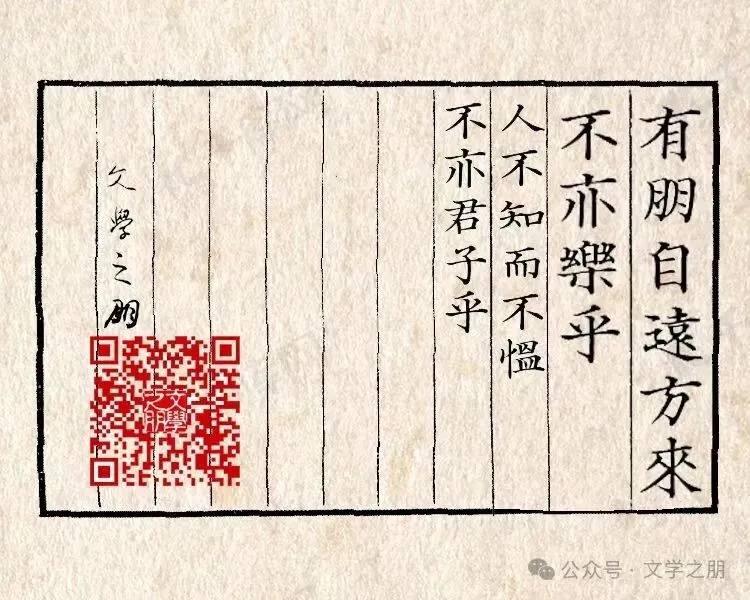 有朋自遠方來
不亦樂乎
人不知而不愠
不亦君子乎
文學之朋
文學之朋
公众号 · 文学之朋